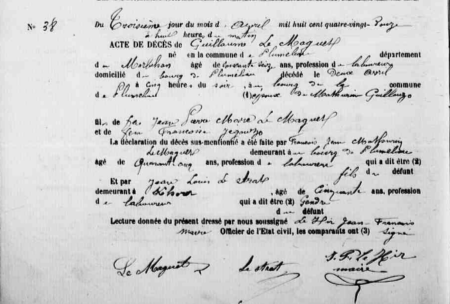 Du Troisième jour du mois d Avril mil huit cent quatre-vingt-onze
No 38 à huit heures, du matin
ACTE DE DÉCÈS de Guillaume Le Maguet
né en la commune d Plumelin département
du Morbihan âgé de ans, profession de laboureur
domicilié au bourg de Plumelin décédé le Deux Avril
à Cinq heures du soir au bourg de la commune
d Plumelin époux de Mathurine
fils de feu Jean Pierre Marie Le Maguet
et de feu Francoise
La déclaration du décès sus-mentionné a été faite par François Jean Mathurin
Le Maguet demeurant au bourg de Plumelin
âgé de Quarante ans, profession de laboureur qui a dit être (2)
fils du défunt
Et par Jean Louis Le Strat
demeurant à , âgé de Cinquante ans, profession
de laboureur qui a dit être (2) Gendre
du défunt
Lecture donnée du présent dressé par nous soussigné Le Hir Jean François
maire Officier de l'Etat civil, les comparants ont (3) signé
Le Maguet Le Strat J. F. Le Hir
maire